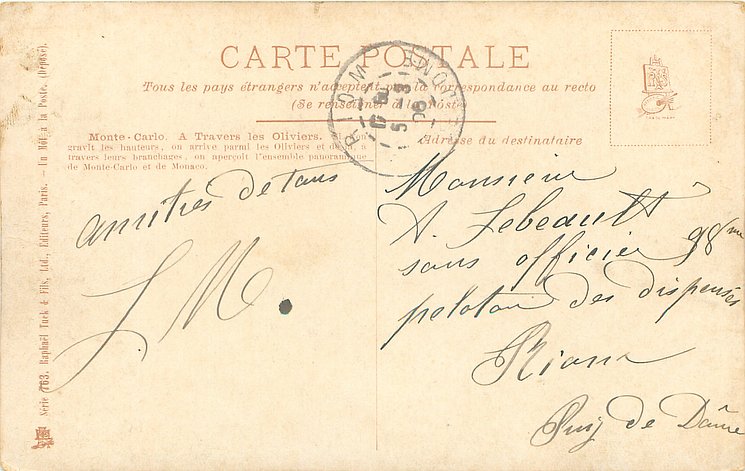 CARTE POSTALE
Tous les pays étrangers n'acceptent pas la correspondance au recto
(Se renseigner à la Poste)
Monte-Carlo. A Travers les Oliviers. Si l'on
gravit les hauteurs, on arrive parmi les Oliviers et de là, à
travers leurs branchages, on aperçoit l'ensemble panoramique
de Monte-Carlo et de Monaco.
Adresse du destinataire
RIOM
amitiés de tous
L M.
Monsieur
A. Lebeault
sous officier 98me
peloton des dispensés
Riom
Puy de Dôme
Série 763. Raphaël Tuck & Fils, Ltd., Editeurs, Paris. — Un Mot à la Poste. (Déposé).